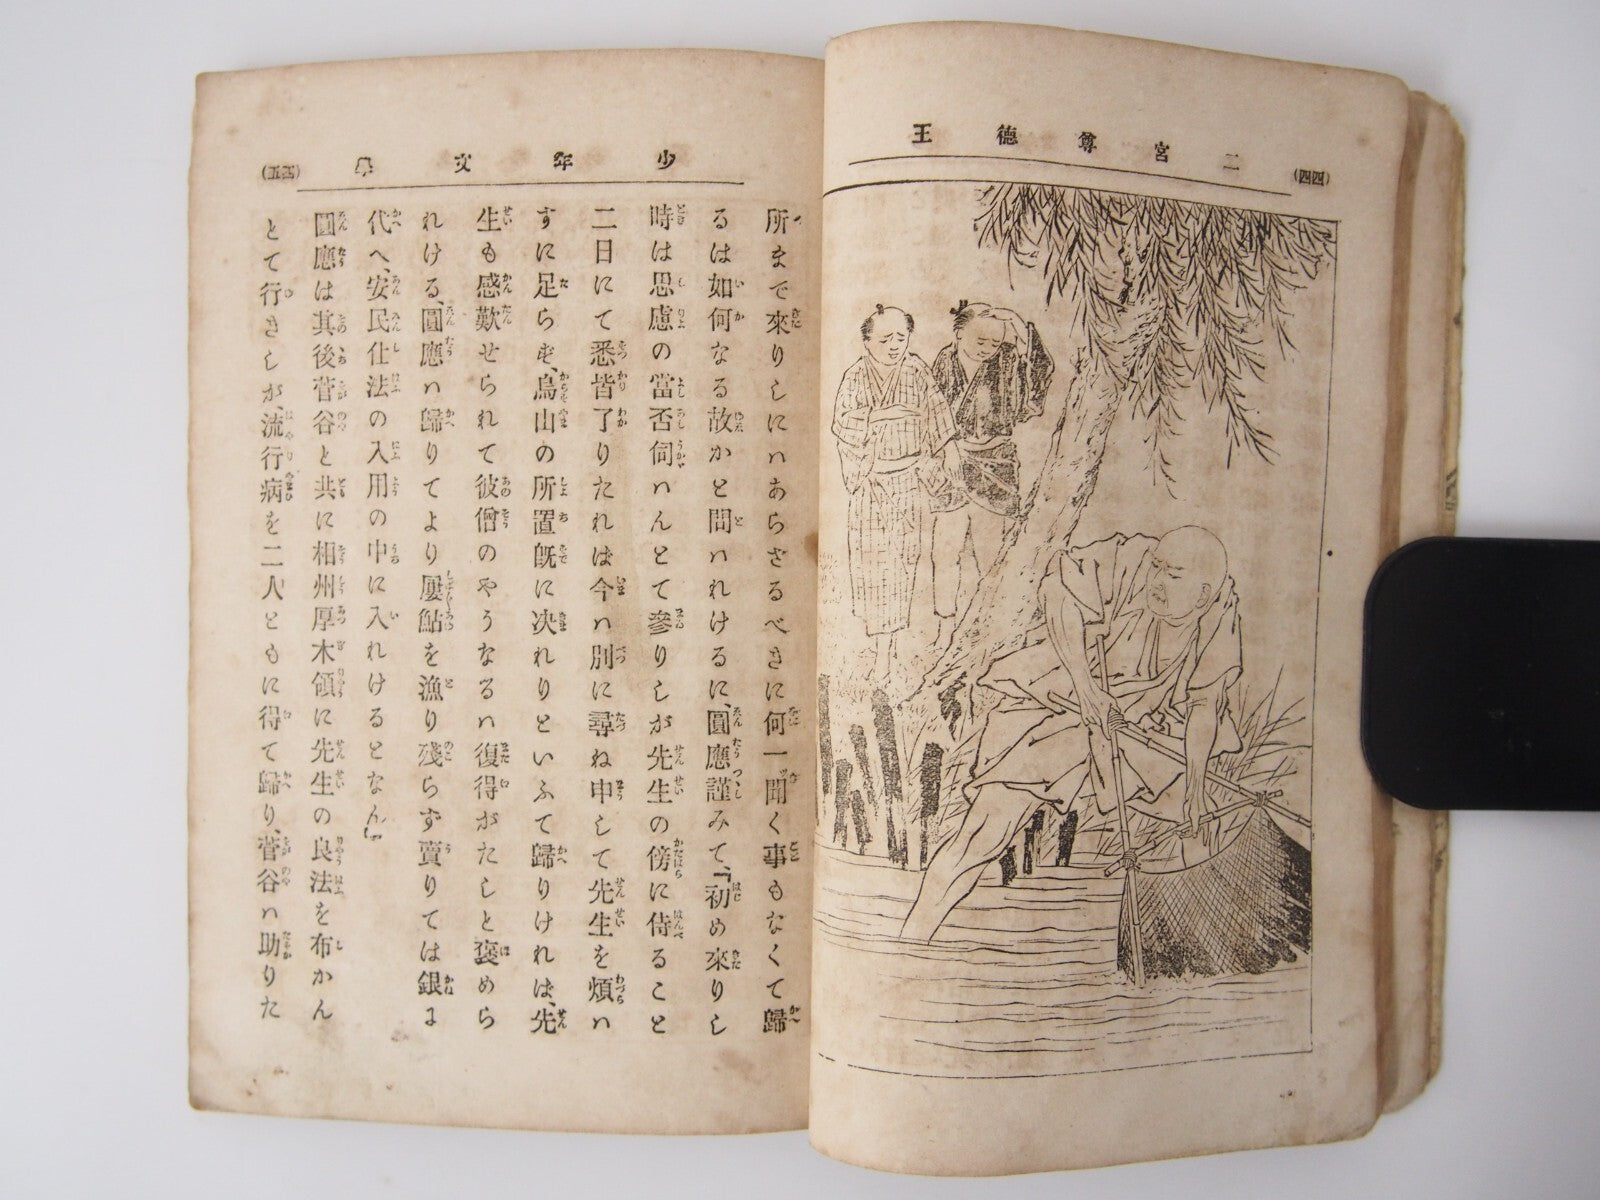 二宮尊德王
(四四)
少年文學
(四五)
所まで來りしにハあらざるべきに何一ッ聞く事もなくて歸
るは如何なる故かと問ハれけるに、圓應謹みて、『初め來りし
時は思慮の當否伺ハんとて參りしが先生の傍に侍ること
二日にて悉皆了りたれば今ハ別に尋ね申して先生を煩ハ
すに足らず、烏山の所置既に决れりといふて歸りければ、先
生も感歎せられて彼僧のやうなるハ復得がたしと褒めら
れける、圓應ハ歸りてより屢鮎を漁り殘らず賣りては銀に
代へ、安民仕法の入用の中に入れけるとなん』
圓應は其後菅谷と共に相州厚木領に先生の良法を布かん
とて行きしが流行病を二人ともに得て歸り、菅谷ハ助りた